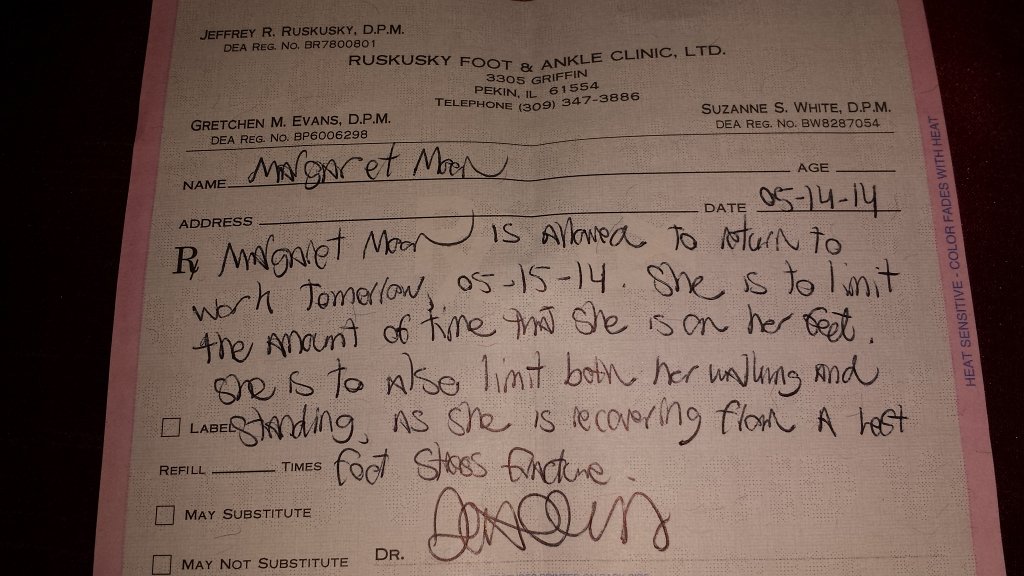 JEFFREY R. RUSKUSKY, D.P.M.
DEA REG. NO. BR7800801
RUSKUSKY FOOT & ANKLE CLINIC, LTD.
3305 GRIFFIN
PEKIN, IL 61554
TELEPHONE (309) 347-3886
GRETCHEN M. EVANS, D.P.M.
DEA REG. NO. BP6006298
SUZANNE S. WHITE, D.P.M.
DEA REG. NO. BW8287054
NAME Margaret Moon AGE
ADDRESS DATE 05-14-14
Rx Margaret Moon is allowed to return to
work tomorrow, 05-15-14. She is to limit
the amount of time that she is on her feet.
She is to also limit both her walking and
LABEL standing, as she is recovering from a
REFILL TIMES foot stress fracture.
MAY SUBSTITUTE
MAY NOT SUBSTITUTE DR.
HEAT SENSITIVE - COLOR FADES WITH HEAT